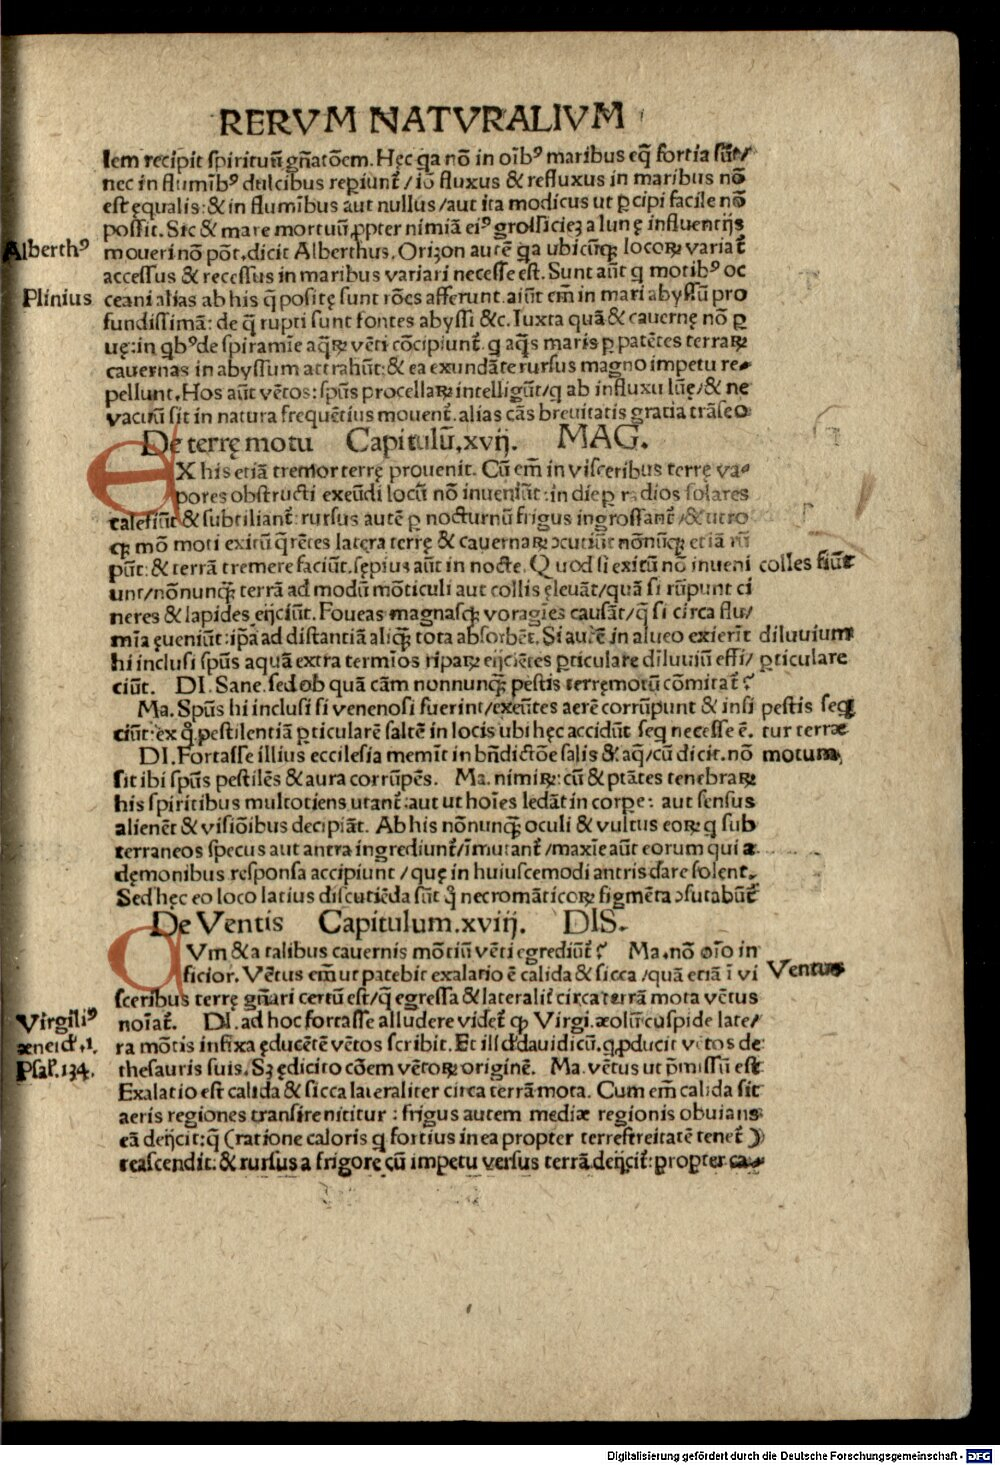 RERVM NATVRALIVM
lem recipit spirituũ gñatõem. Hęc qa nõ in oĩbꝰ maribus eq̃ fortia sũt/
nec in flumĩbꝰ dulcibus reꝑiunt̃/iõ fluxus & refluxus in maribus nõ
est ęqualis: & in flumĩbus aut nullus/aut ita modicus ut ꝑcipi facile nõ
possit. Sic & mare mortuũ ꝓpter nimiã eiꝰ grossiciez a lunę influentijs
Alberthꝰ
moueri nõ põt. dicit Alberthus. Orizon autẽ qa ubicũqꝫ locoꝝ variat̃
accessus & recessus in maribus variari necesse est. Sunt aũt q motibꝰ oc
Plinius
ceani alias ab his q̃ positę sunt rões afferunt. aiũt em̃ in mari abyssũ pro
fundissimã: de q̃ rupti sunt fontes abyssi &c. Iuxta quã & cauernę nõ ꝑ
uę: in qbꝰ de spiramĩe aq̃ꝝ vẽti cõcipiunt̃. q aq̃s maris ꝑ patẽtes terraꝝ
cauernas in abyssum attrahũt: & ea exundãte rursus magno impetu re-
pellunt. Hos aũt vẽtos: spũs procellaꝝ intelligũt/q ab influxu lũę/& ne
vacuũ sit in natura frequẽtius mouent̃. alias cãs breuitatis gratia trãseo
De terrę motu Capitulũ.xvij. MAG.
EX his etiã tremor terrę prouenit. Cũ em̃ in visceribus terrę va-
pores obstructi exeũdi locũ nõ inueniũt: in die ꝑ radios solares
calefiũt & subtiliant̃: rursus autẽ ꝑ nocturnũ frigus ingrossant̃/& utro
qꝫ mõ moti exitũ q̃rẽtes latera terrę & cauernaꝝ ↄcutiũt nõnũqꝫ etiã rũ
pũt: & terrã tremere faciũt. sępius aũt in nocte. Quod si exitũ nõ inueni
colles fiũt
unt/nõnunqꝫ terrã ad modũ mõticuli aut collis ęleuãt/quã si rũpunt ci
neres & lapides eijciũt. Foueas magnasqꝫ voragies causãt/q̃ si circa flu/
mĩa ęueniũt: ip̃a ad distantiã aliqꝫ tota absorbẽt. Si autẽ in alueo exierĩt
diluuium
hi inclusi spũs aquã extra termĩos ripaꝝ eijciẽtes ꝑticulare diluuiũ effi/
ꝑticulare
ciũt. DI. Sane. sed ob quã cãm nonnunqꝫ pestis terręmotũ cõmitat̃?
Ma. Spũs hi inclusi si venenosi fuerint/exeũtes aerẽ corrũpunt & infi
pestis seq
ciũt: ex q̃ pestilentiã ꝑticularẽ saltẽ in locis ubi hęc accidũt seq necesse ẽ.
tur terræ
DI. Fortasse illius ecclesia memĩt in bñdictõe salis & aq̃/cũ dicit. nõ
motum
sit ibi spũs pestilẽs & aura corrũpẽs. Ma. nimiꝝ: cũ & ptãtes tenebraꝝ
his spiritibus multotiens utant̃: aut ut hoĩes lędãt in corpe: aut sensus
alienẽt & visiõibus decipiãt. Ab his nõnunqꝫ oculi & vultus eoꝝ q sub
terraneos specus aut antra ingrediunt̃/ĩmutant̃/maxĩe aũt eorum qui a
dęmonibus responsa accipiunt/quę in huiuscemodi antris dare solent.
Sed hęc eo loco latius discutiẽda sũt q̃ necromãticoꝝ figmẽta ↄfutabũt̃
De Ventis Capitulum.xviij. DIS.
CVm & a talibus cauernis mõtiũ vẽti egrediũt̃? Ma. nõ oĩo in
ficior. Vẽtus em̃ ut patebit exalatio ẽ calida & sicca/quã etiã ĩ vi
Ventus
sceribus terrę gñari certũ est/q̃ egressa & laterali᷑t circa terrã mota vẽtus
Virgiliꝰ
noĩat̃. DI. ad hoc fortasse alludere videt̃ qꝫ Virgi. æolũ cuspide late/
æneid.1.
ra mõtis infixa ęducẽtẽ vẽtos scribit. Et illd dauidicũ. q ꝓducit vẽtos de
Psal.134.
thesauris suis. Sꝫ ędicito cõem vẽtoꝝ originẽ. Ma. vẽtus ut p̃missũ est
Exalatio est calida & sicca lateraliter circa terrã mota. Cum em̃ calida sit
aeris regiones transire nititur: frigus autem mediæ regionis obuians
eã deijcit: q̃ (ratione caloris q fortius in ea propter terrestreitatẽ tenet̃)
reascendit: & rursus a frigore cũ impetu versus terrã deijcit̃: propter ca-
Digitalisierung gefördert durch die Deutsche Forschungsgemeinschaft - DFG